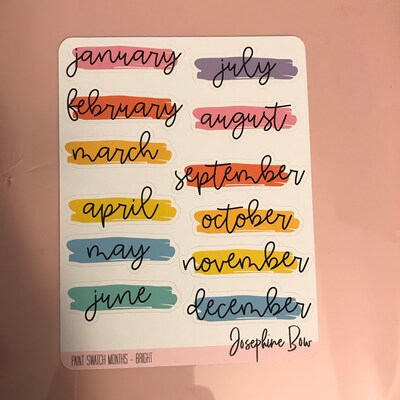 january
february
march
april
may
june
july
august
september
october
november
december
PAINT SWATCH MONTHS - BRIGHT
Josephine Bow